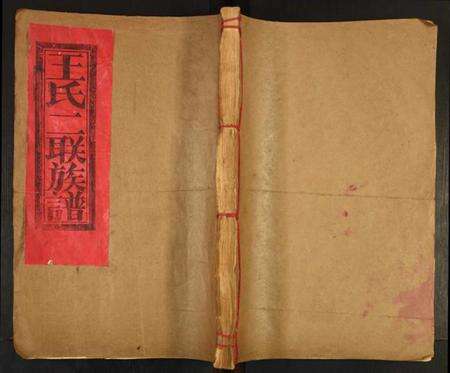 王氏二联族譜